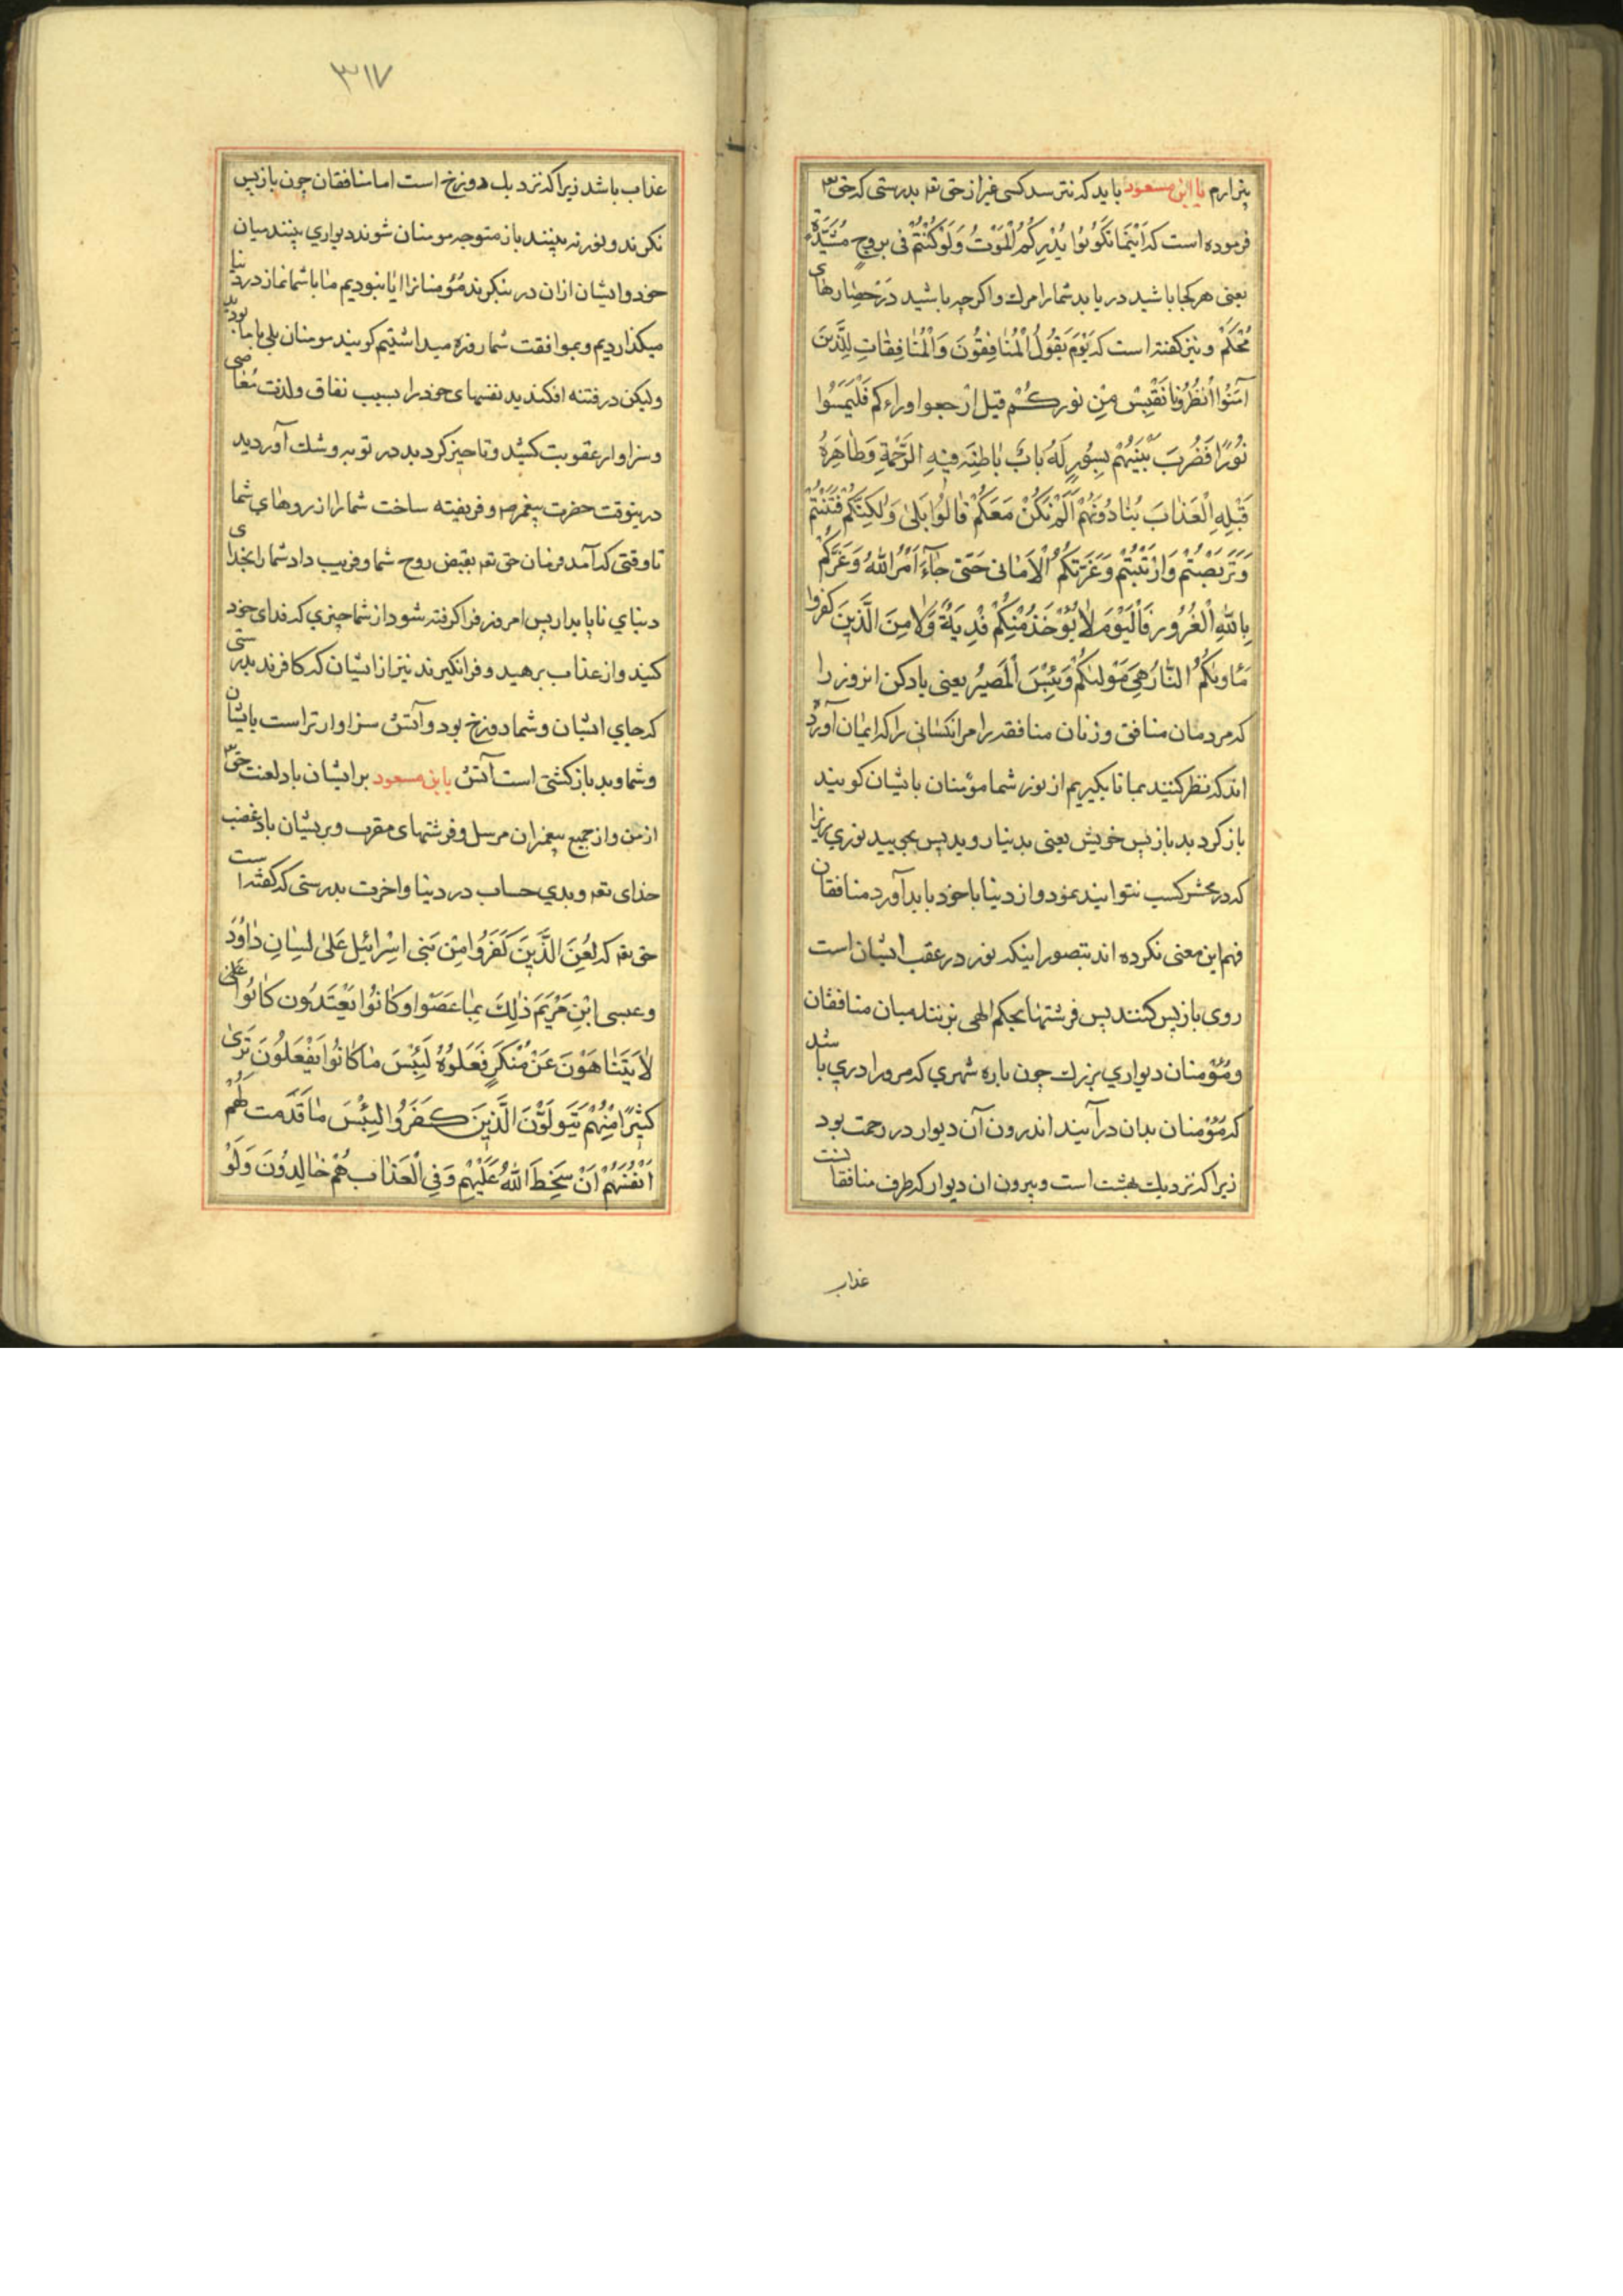 بیزارم یا ابن مسعود باید که نترسد کسی غیر از حق تع بدرستی که حق تع
فرموده است که اَیْنَمَا تَکُونُوا یُدْرِکُمُ الْمَوْتُ وَلَوْ کُنْتُمْ فی بروجٍ مُشَیَّدَةٍ
یعنی هر کجا باشید دریابد شمارا مرك واکرچه باشید دَرْحِصٰارهای
مُحْکَمْ ونیز کفته است که یَوْمَ یَقُولُ الْمُنٰافِقُونَ وَالْمُنٰافِقٰاتِ لِلَّذینَ
آمَنُوا انْظُرُونٰا نَقْتَبِسْ مِنْ نورکُمْ قیل ارجعوا وراءکم فَلْتَمِسُوا
نُورًا فَضُرِبَ بَیْنَهُمْ بِسُورٍ لَهُ بابٌ بٰاطِنُهُ فیهِ الرَّحْمَةِ وَظٰاهِرُهُ
قَبْلِهِ الْعَذٰابَ یُنٰادُونَهُمْ اَلَمْ نَکُنْ مَعَکُمْ قٰالُوا بَلیٰ وَلٰکِنَّکُمْ فَتَنْتُمْ
وَتَرَبَّصْتُمْ وَارْتَبْتُمْ وَغَرَّتْکُمُ الْاَمٰانی حَتّی جٰآءَ اَمْرُ اللّٰهِ وَغَرَّکُمْ
بِاللّٰهِ الْغُرُور فَالْیَوْمَ لٰا یُؤْخَذُ مِنْکُمْ فِدْیَةً وَلٰا مِنَ الَّذینَ کفروا
مَأْویٰکُمُ النّٰارُ هِیَ مَوْلٰیکُمْ وَبِئْسَ الْمَصیرُ یعنی یاد کن انروز را
که مردمان منافق وزنان منافقه را مرانکسٰانی را که ایمٰان آورد
اند که نظر کنید بما تا بکیریم از نور شما مؤمنان باایشان کویند
باز کردید بازپس خویش یعنی بدینا روید پس بجویید نوری زیرا
که در محشر کسب نتوانید نمود واز دینا با خود باید آورد منافقان
فهم این معنی نکرده اند بتصور اینکه نور در عقب ایشان است
روی بازپس کنند پس فرشتهٰا بحکم الهی بزنند میان منافقان
ومؤمنان دیواری بزرك چون باره شهری که مر ورا دری باشد
که مؤمنان بدان درآیند اندرون آن دیوار در رحمت بود
زیرا که نزدیك بهشت است وبیرون ان دیوار که طرف منافقانست
عذاب
٣١٧
عذاب باشد زیرا که نزدیك دوزخ است اما منافقان چون بازپس
نکرند ونور نه بینند باز متوجه مومنان شوند دیواری بینند میان
خود وایشان ازان در بنکرند مؤمنانرا ایا نبودیم مٰا باشما نماز در دنیا
میکذاردیم وبموافقت شما روزه میداشتیم کویند مومنان بلی با ما بودید
ولیکن در فتنه افکندید نفسهای خود را بسبب نفاق ولذت مُعٰاصی
وسزاوار عقوبت کشید وتاخیر کردید در توبه وشك آوردید
درینوقت حضرت پیغمبر ص وفریفته ساخت شما را ارزوهٰای شما
تا وقتی که آمد فرمان حق تع بقبض روح شما وفریب داد شما را بخدای
دنیای ناپایدار پس امروز فرا کرفته شود از شما چیزی که فدای خود
کنید واز عذاب برهید وفرانکیرند نیز ازایشان که کافرند بدرستی
که جای ایشان وشما دوزخ بود وآتش سزاوارتر است بایشان
وشما وبد بازکشتی است آتش یابن مسعود برایشان باد لعنت حق تع
از من واز جمیع پیغمبران مرسل وفرشتهای مقرب وبریشان باد غضب
خدای تع وبدی حساب در دنیا واخرت بدرستی که کفته است
حق تع که لُعِنَ الَّذینَ کَفَرُوا مِنْ بَنی اسْرائیلَ عَلیٰ لِسٰانِ دٰاوُدَ
وعیسی ابْنِ مَرْیَمَ ذٰلِكَ بِمٰا عَصَوْا وکٰانُوا یَعْتَدُون کٰانُوا
لٰا یَتَنٰاهَوْنَ عَنْ مُنْکَرٍ فَعَلُوهُ لَبِئْسَ مٰا کٰانُوا یَفْعَلُونَ تَریٰ
کثیرًا مِنْهُمْ یَتَوَلَّوْنَ الَّذینَ کَفَرُوا لبِئْسَ مٰا قَدَّمَت لَهُمْ
اَنْفُسُهُمْ اَنْ سَخِطَ اللّٰهُ عَلَیْهِمْ وَفِی الْعَذٰاب هُمْ خٰالِدُونَ وَلَوْ